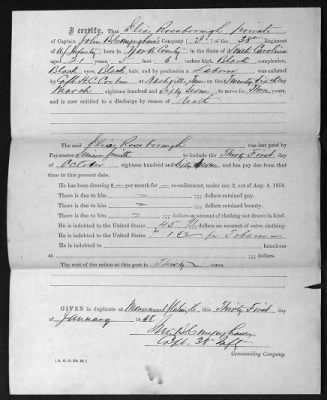 I Certify, That Elias Rosborough private
of Captain John B Conyngham's Company ("D") of the 38th Regiment
of Infantry born in York County in the State of South Carolina
aged 21 years, 5 feet 4 inches high, Black complexion,
Black eyes, Black hair, and by profession a Laborer was enlisted
by Capt. H.C. Corbin at Nashville, Tenn on the Twenty Sixth of
March eighteen hundred and Sixty Seven to serve for Three years,
and is now entitled to a discharge by reason of Death
The said Elias Rosborough was last paid by
Paymaster Smith to include the Thirty First day
of October eighteen hundred and Sixty Seven and is due from that
time to the present date.
He has been drawing $ per month for re-enlistment, under sec. 2, act of Aug. 4, 1854.
There is due to him dollars retained pay.
There is due to him dollars retained bounty.
There is due to him dollars on account of clothing not drawn in kind.
He is indebted to the United States 45 dollars on account of extra clothing.
He is indebted to the United States for Tobacco
He is indebted to
at dollars.
The cost of the ration at this post is Thirty cents.
GIVEN in duplicate at Monument Station Ks this Thirty First day
of January 1868
Jno. B. Conyngham
Capt. 38 Inft
Commanding Company.